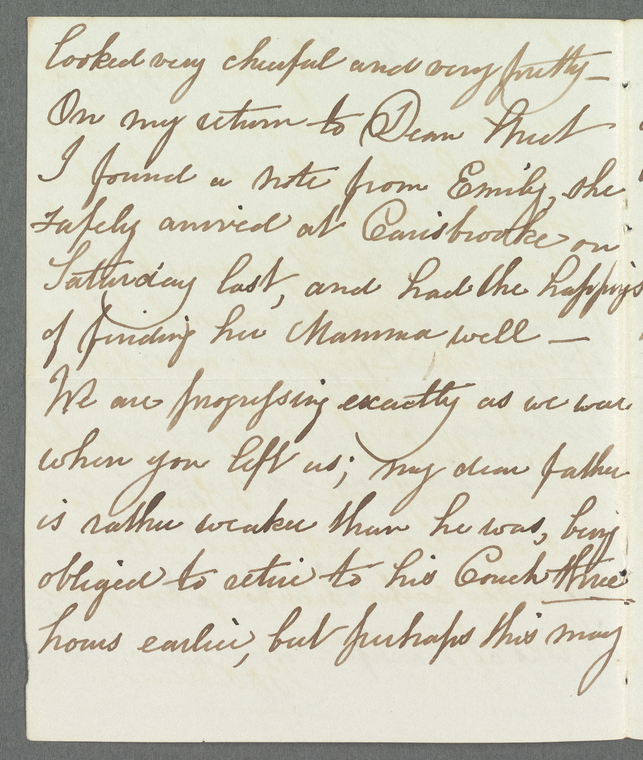 looked very cheerful and very pretty –
On my return to Dean Street
I found a note from Emily, she
safely arrived at Carisbrooke on
Saturday last, and had the happiness
of finding her Mamma well –
We are progressing exactly as we were
when you left us; my dear father
is rather weaker than he was, being
obliged to retire to his Couch three
hours earlier, but perhaps this may